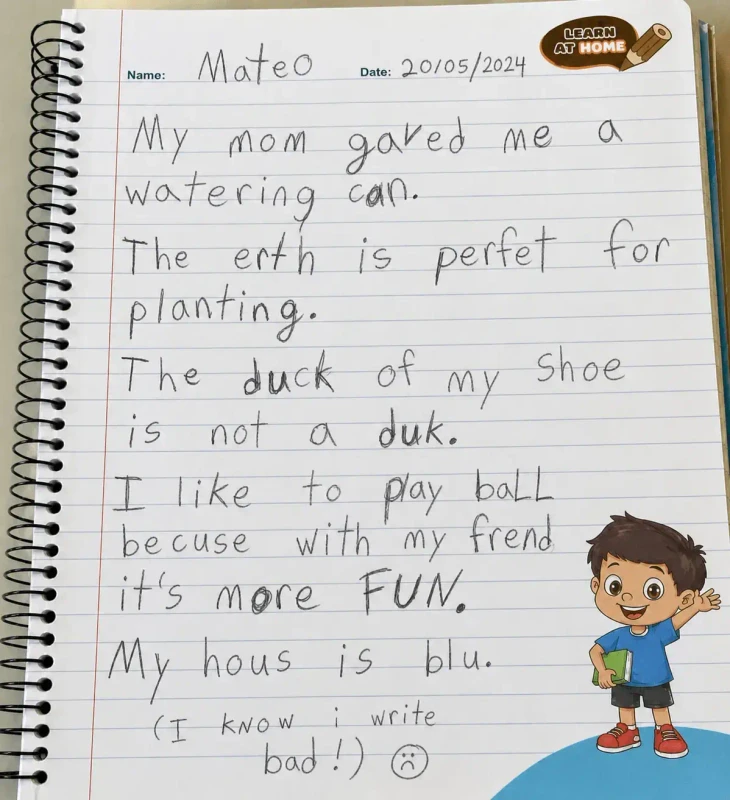 LEARN
AT HOME
Name: Mateo Date: 20/05/2024
My mom gaved me a
watering can.
The erth is perfet for
planting.
The duck of my shoe
is not a duk.
I like to play baLL
becuse with my frend
it's more FUN.
My hous is blu.
(I know i write
bad!)